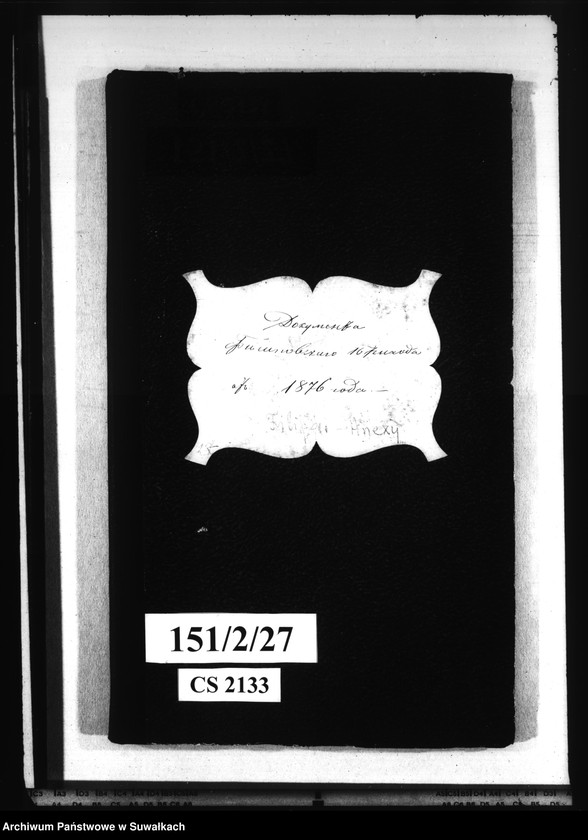 Документа
Филиповскаго прихода
съ 1876 года.—
Filipów - Anexy
151/2/27
CS 2133
Archiwum Państwowe w Suwałkach